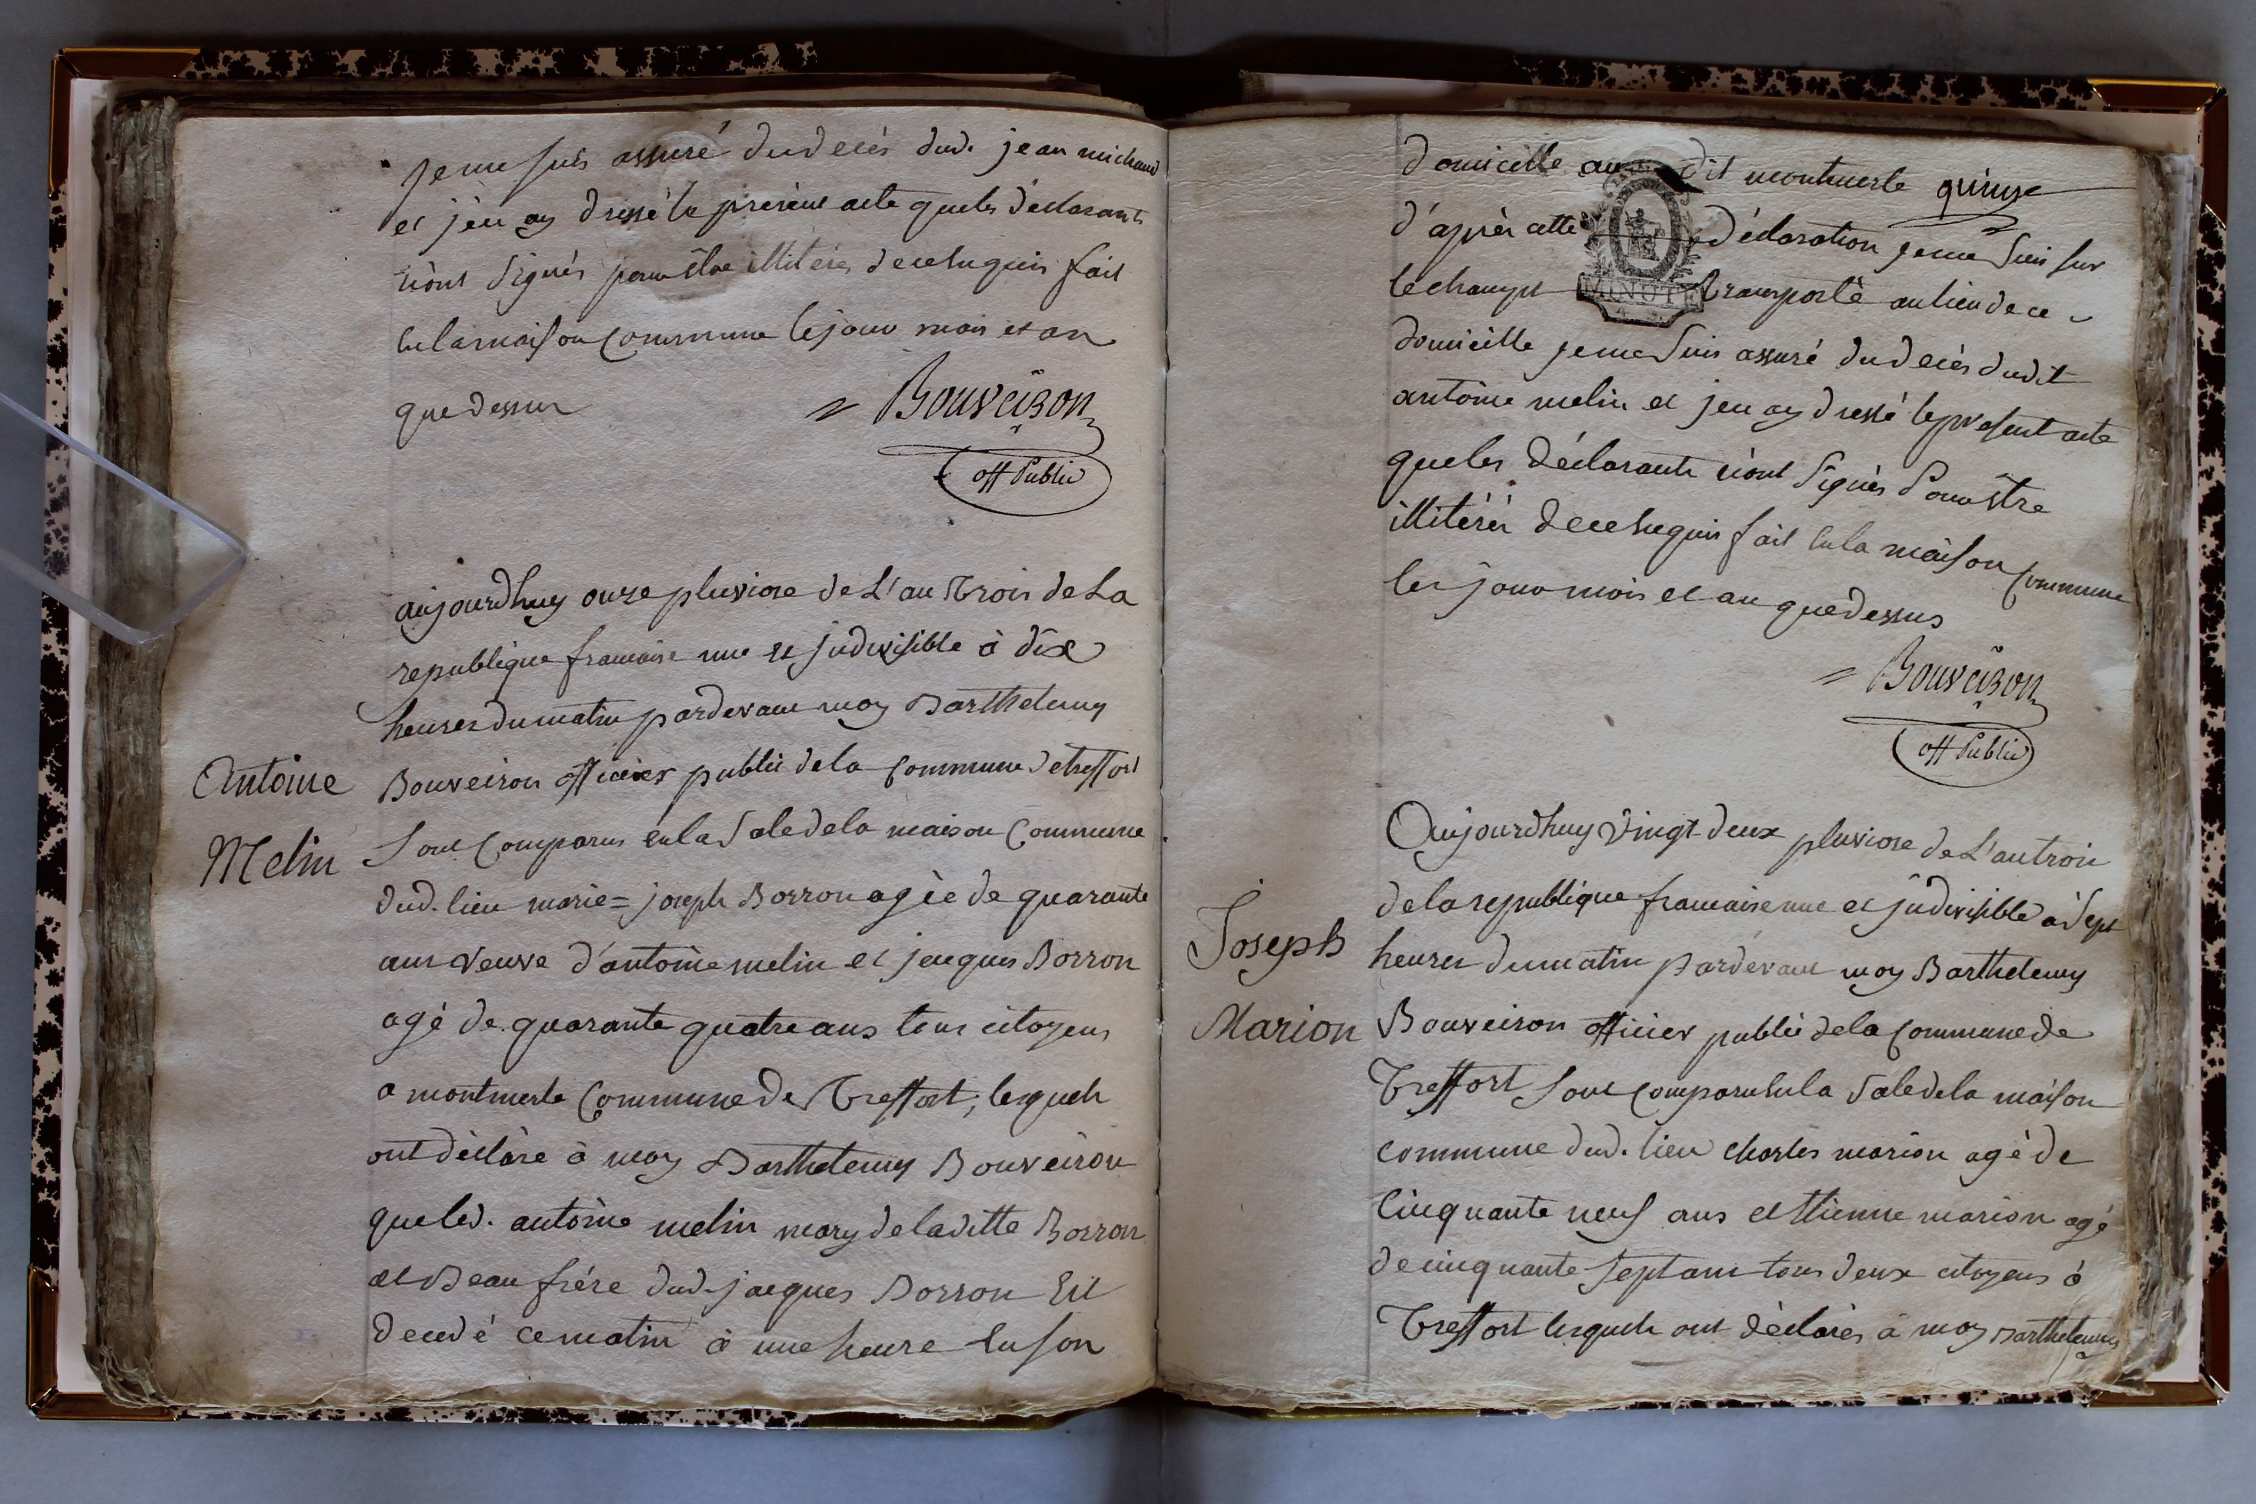 je me suis assuré du decés dud. jean michaud
et j'en ay dressé le présent acte que les déclarants
n'ont signés pour être illitérés de ce enquis fait
en la maison commune le jour mois et an
que dessus = Bouveiron
off Public
aujourdhuy onze pluviose de L'an trois de La
republique francaise une et jndivisible à dix
heures du matin pardevant moy Barthelemy
Antoine
Bouveiron officier public de la commune de treffort
Melin
sont comparus en la sale de la maison commune
dud. lieu marie = joseph Borron agée de quarante
ans veuve d'antoine melin et jacques Borron
agé de quarante quatre ans tous citoyens
a montmerle commune de Treffort, lesquels
ont déclaré à moy Barthelemy Bouveiron
que led. antoine melin mary de laditte Borron
et Beau frére dud. jacques Borron Est
decedé ce matin à une heure en son
domicille au dit montmerle quinze
d'après cette déclaration je me suis sur
MINUTE
le champt transporté au lieu de ce
domicille je me suis assuré du decés dudit
antoine melin et j'en ay dressé le présent acte
que les déclarants n'ont signés Pour être
illitérés de ce enquis fait en la maison commune
les jour mois et an que dessus
= Bouveiron
off Public
Aujourdhuy vingt deux pluviose de L'an trois
de la republique francaise une et jndivisible à sept
Joseph
heures du matin pardevant moy Barthelemy
Marion
Bouveiron officier public de la commune de
Treffort sont comparus en la sale de la maison
commune dud. lieu charles marion agé de
cinquante neuf ans et Etienne marion agé
de cinquante sept ans tous deux citoyens à
Treffort lesquels ont déclarés à moy Barthelemy